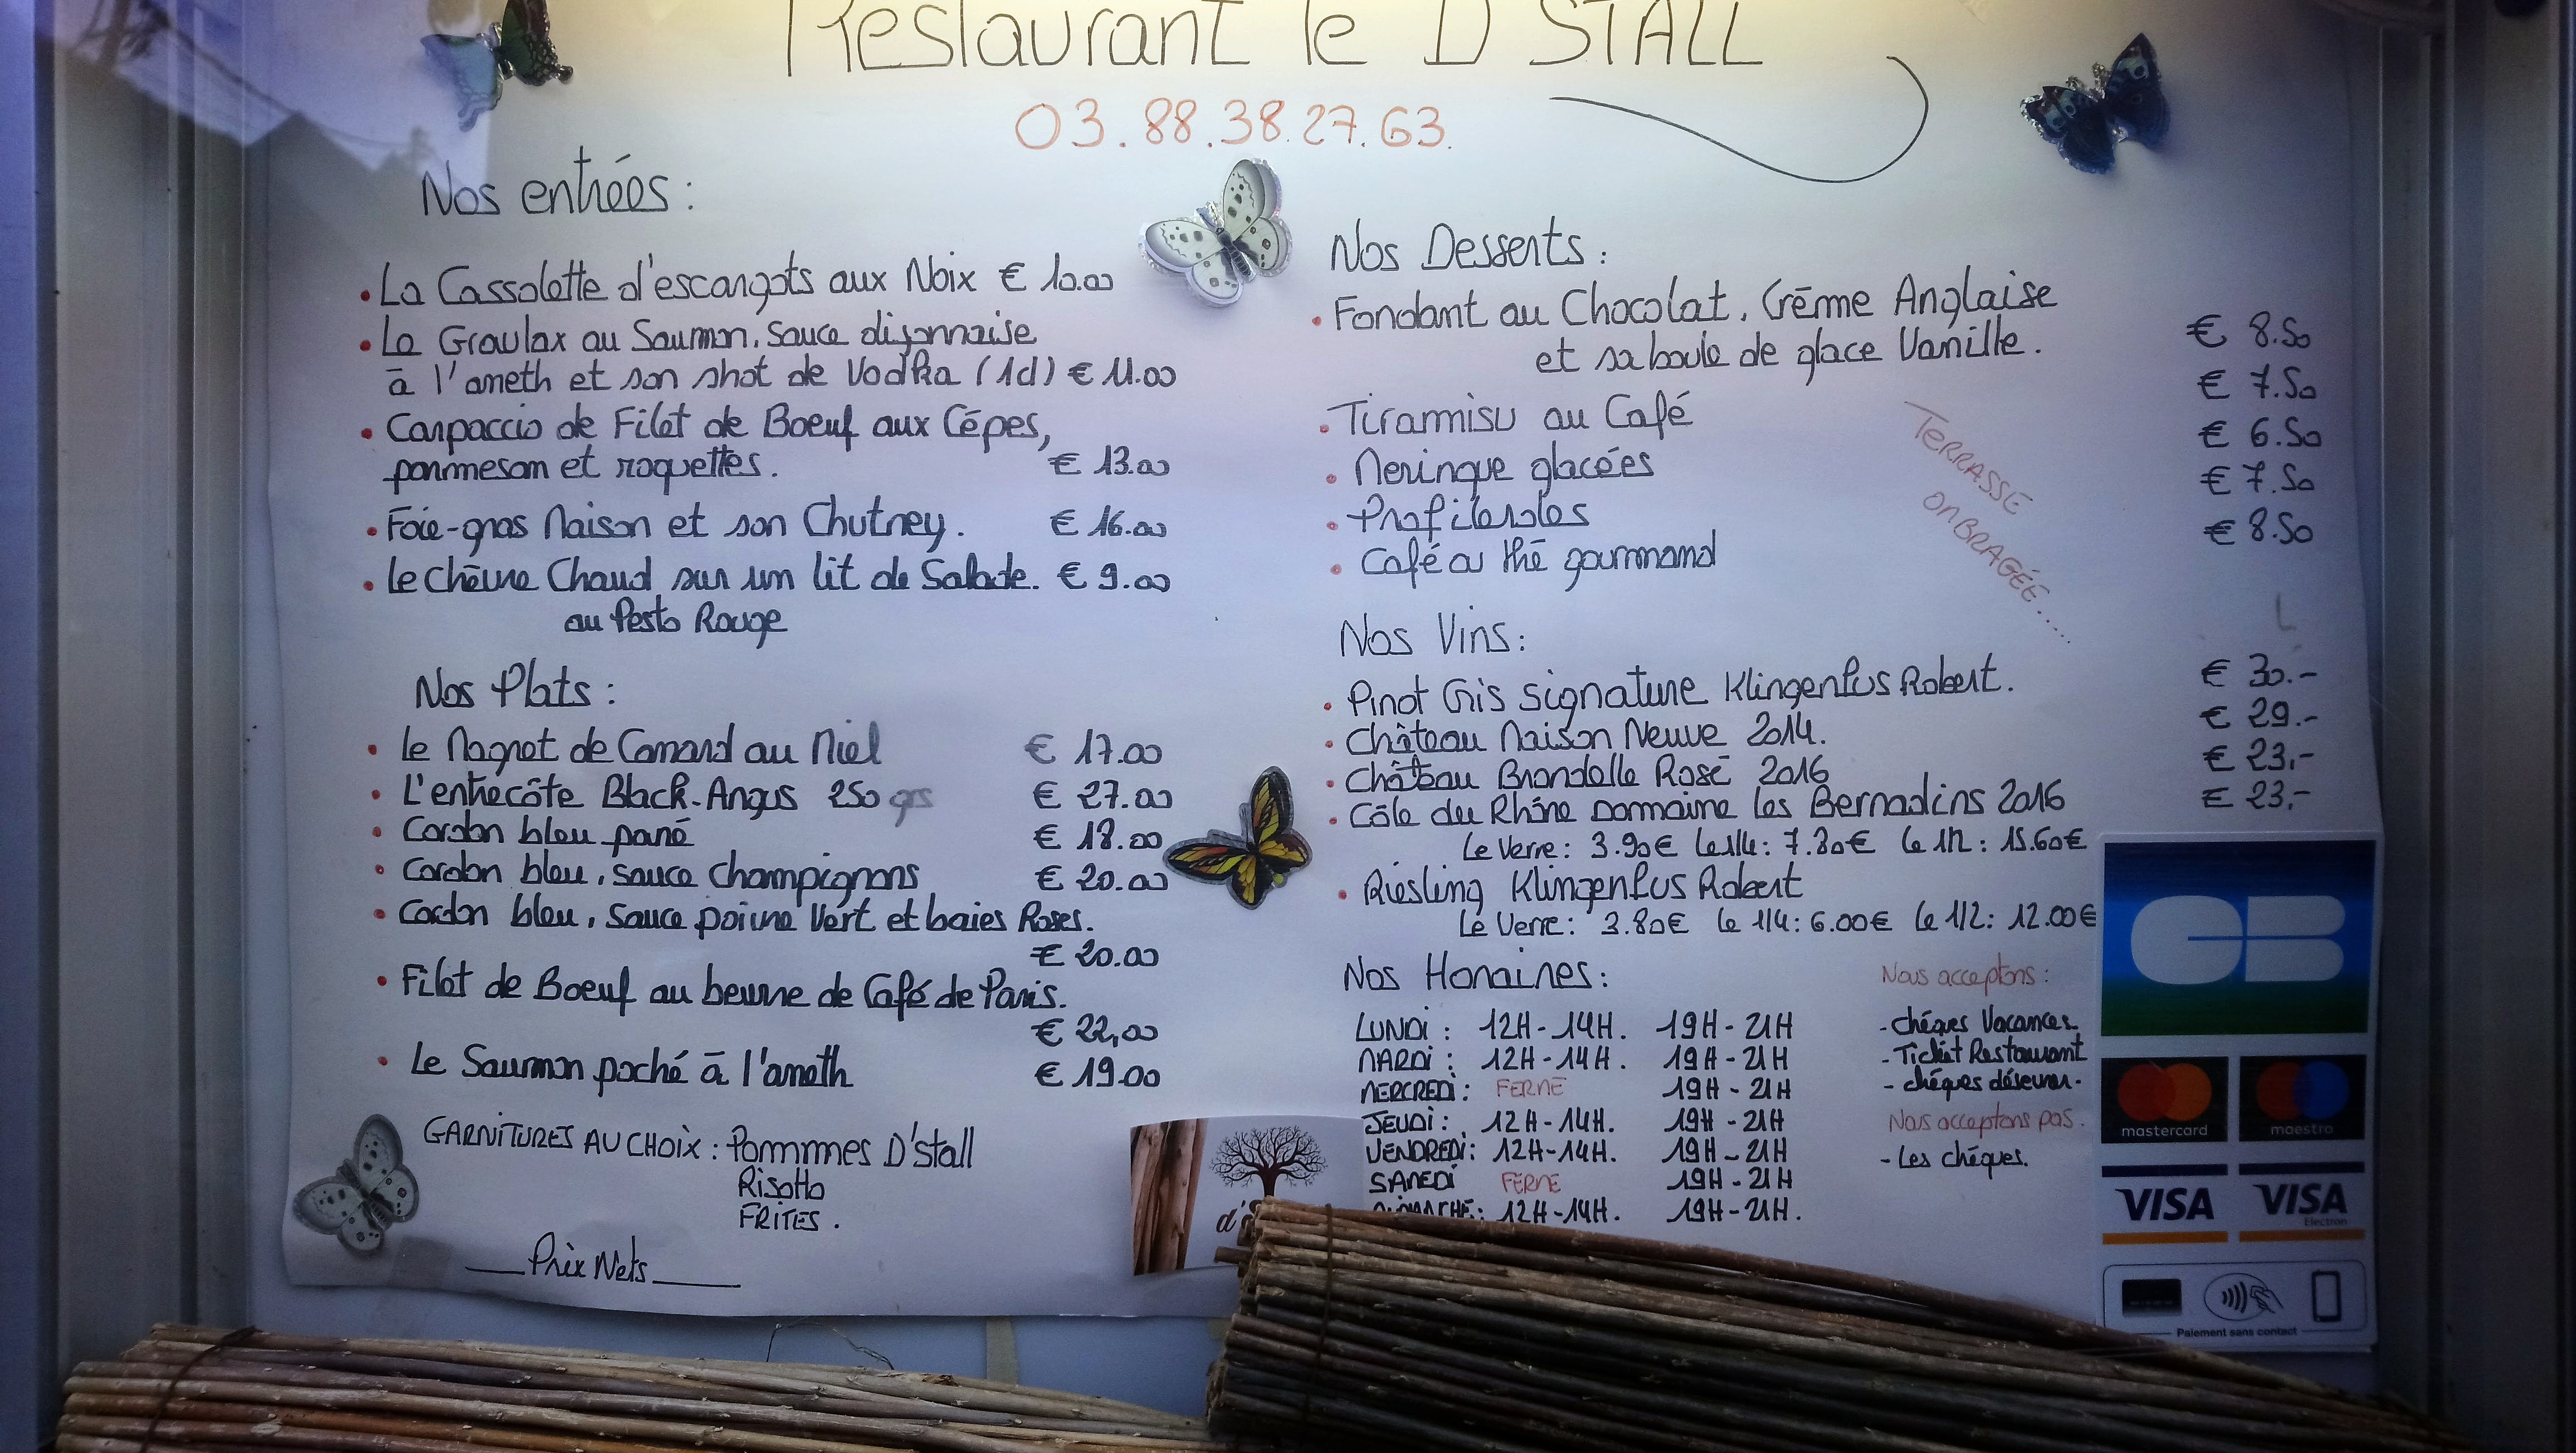 Restaurant le D'STALL
03.88.38.27.63.
Nos entrées :
• La Cassolette d'escargots aux Noix € 10.00
• La Gravlax au Saumon, sauce dijonnaise
à l'aneth et son shot de Vodka (1cl) € 11.00
• Carpaccio de Filet de Boeuf aux Cépes,
parmesan et roquettes. € 13.00
• Foie-gras Maison et son Chutney. € 16.00
• Le Chèvre Chaud sur un lit de Salade. € 9.00
au Pesto Rouge
Nos Plats :
• Le Magret de Canard au Miel € 17.00
• L'entrecôte Black-Angus 250 grs € 27.00
• Cordon bleu pané € 18.00
• Cordon bleu, sauce champignons € 20.00
• Cordon bleu, sauce poivre Vert et baies Roses.
€ 20.00
• Filet de Boeuf au beurre de Café de Paris.
€ 22,00
• Le Saumon poché à l'aneth € 19.00
GARNITURES AU CHOIX : Pommmes D'stall
Risotto
FRITES.
Prix Nets
Nos Desserts :
• Fondant au Chocolat, Crème Anglaise
et sa boule de glace Vanille. € 8.50
• Tiramisu au Café € 7.50
• Meringue glacées € 6.50
• Profiteroles € 7.50
• Café ou thé gourmand € 8.50
TERRASSE
OMBRAGÉE.....
Nos Vins :
• Pinot Gris signature Klingenfus Robert. € 30.-
• Château Maison Neuve 2014. € 29.-
• Château Brondelle Rosé 2016 € 23,-
• Côte du Rhône Domaine les Bernadins 2016 € 23,-
Le Verre : 3.90€ Le 1/4 : 7.80€ Le 1/2 : 15.60€
• Riesling Klingenfus Robert
Le Verre : 3.80€ Le 1/4 : 6.00€ Le 1/2 : 12.00€
Nos Horaires :
LUNDI : 12H-14H. 19H-21H
MARDI : 12H-14H. 19H-21H
MERCREDI : FERMÉ 19H-21H
JEUDI : 12H-14H. 19H-21H
VENDREDI : 12H-14H. 19H-21H
SAMEDI FERMÉ 19H-21H
DIMANCHE : 12H-14H. 19H-21H.
Nous acceptons :
- Chéques Vacances
- Ticket Restaurant
- chéques déjeuner.
Nous acceptons pas.
- Les chéques.
CB
mastercard maestro
VISA VISA
Electron
Paiement sans contact